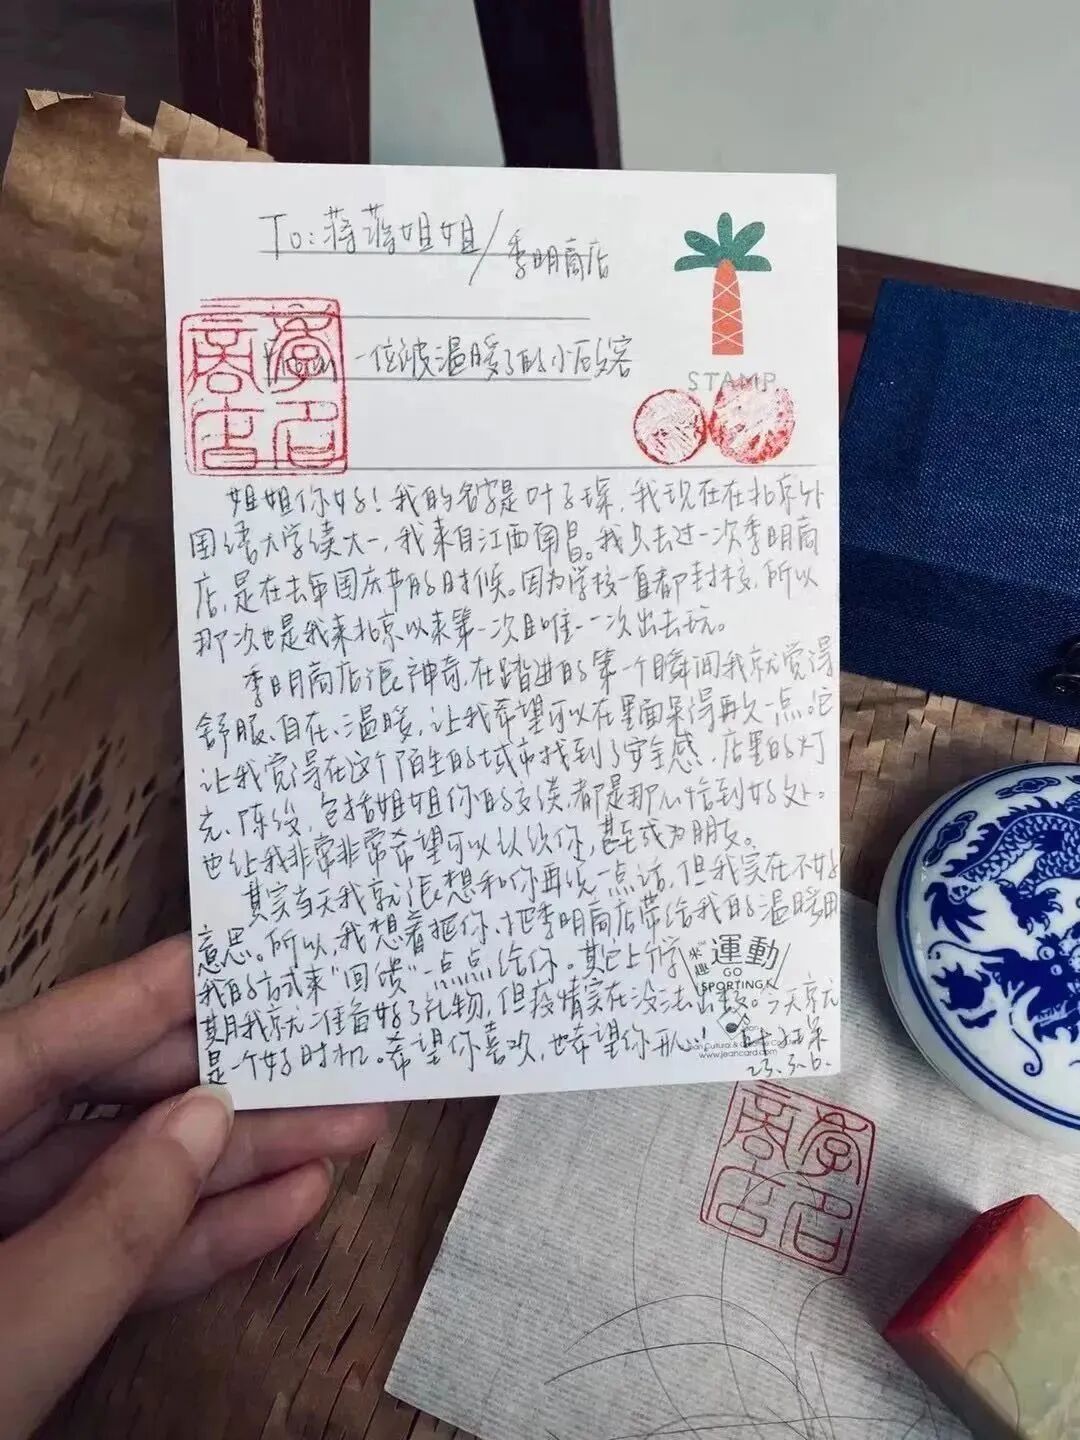 To: 蒋蒋姐姐/季明商店
From 一位被温暖了的小顾客
STAMP
姐姐你好！我的名字是叶子琛，我现在在北京外
国语大学读大一，我来自江西南昌。我只去过一次季明商
店，是在去年国庆节的时候。因为学校一直都封校，所以
那次也是我来北京以来第一次且唯一一次出去玩。
季明商店很神奇，在踏进的第一个瞬间我就觉得
舒服、自在、温暖，让我希望可以在里面呆得再久一点。它
让我觉得在这个陌生的城市找到了安全感，店里的灯
光、陈设，包括姐姐你的交谈，都是那么恰到好处。
也让我非常非常希望可以认识你，甚至成为朋友。
其实当天我就很想和你再说一点话，但我实在不好
意思。所以，我想着把你、把季明商店带给我的温暖用
我的方式来“回馈”一点点给你。其它上学
期我就准备好了礼物，但疫情实在没法出校。今天就
是一个好时机。希望你喜欢，也希望你开心！
23.3.6.
來趣 運動
GO
SPORTING
www.jeancard.com